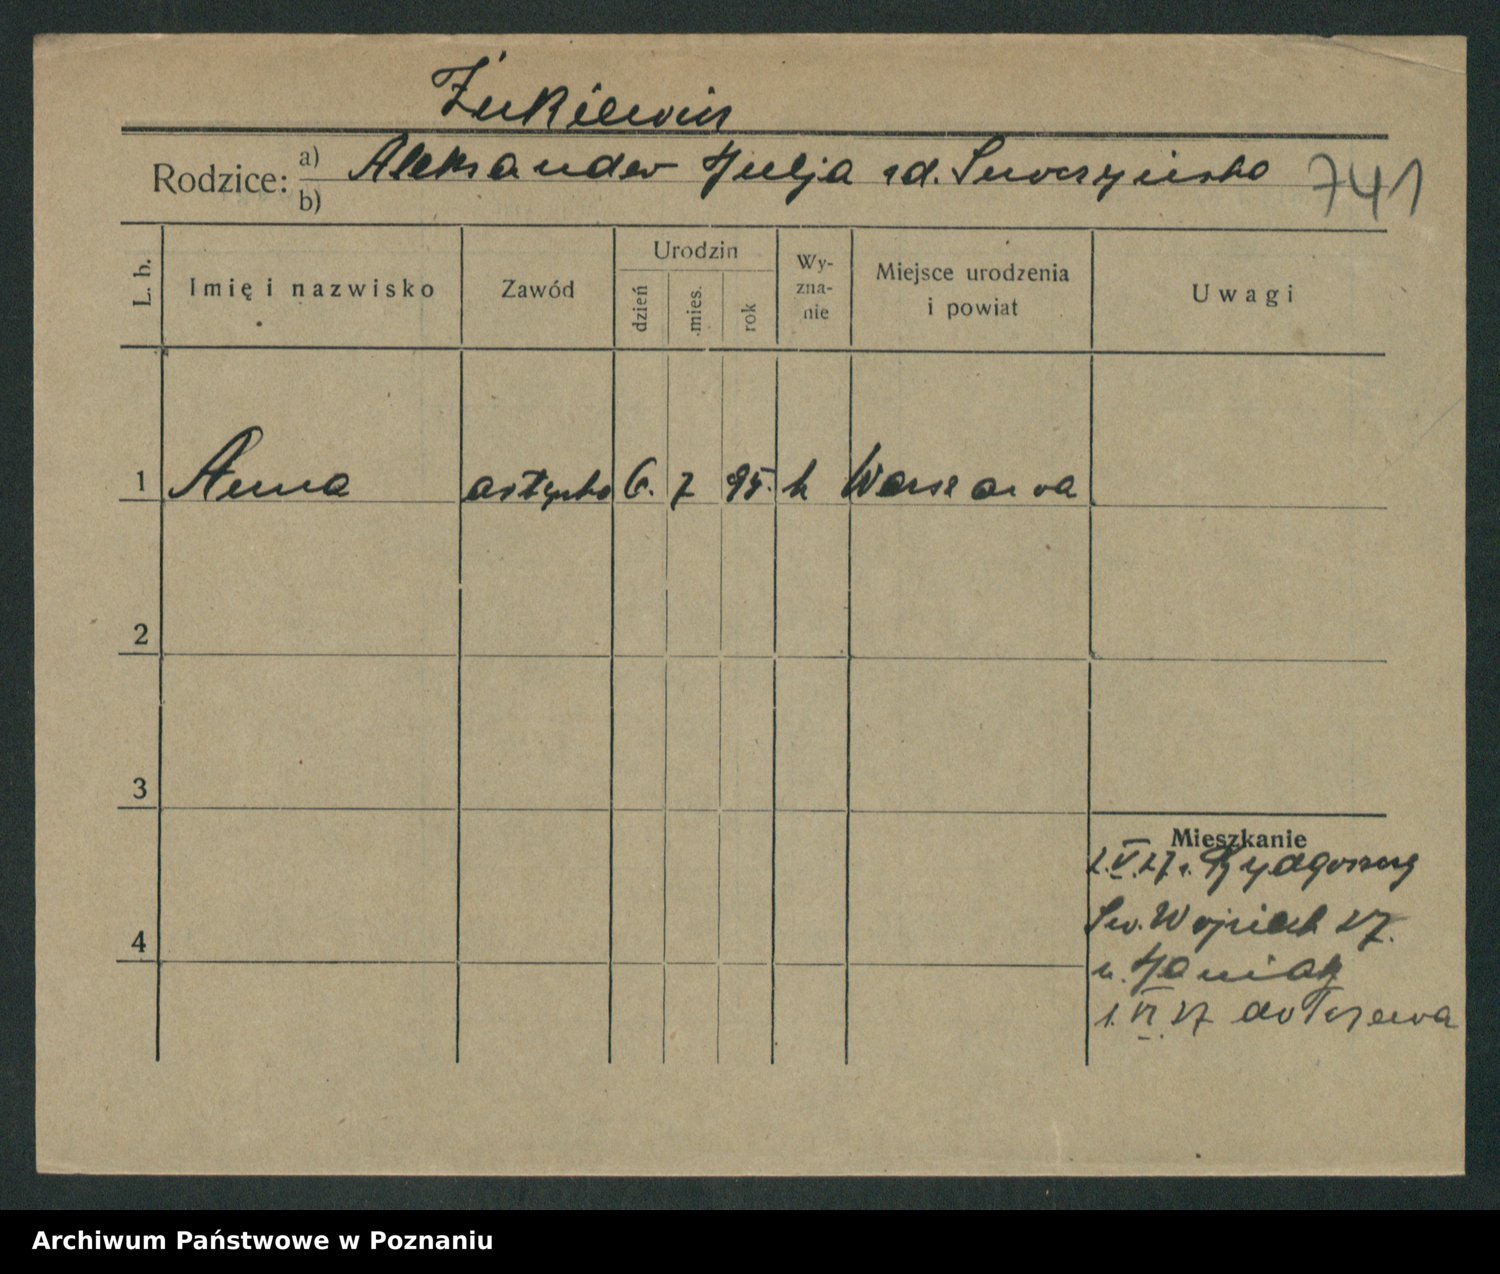 Żukiewicz
Rodzice: a) Aleksander Julja zd. Suwczyńska 741
b)
L. b. Imię i nazwisko Zawód Urodzin dzień mies. rok Wy-zna-nie Miejsce urodzenia i powiat Uwagi
1 Anna artystka 6. 7 95. k Warszawa
2
3
Mieszkanie
2.V.27 r. Bydgoszcz
Św. Wojciech 27.
4
u. Janiak
1.VI.27 do Tczewa
Archiwum Państwowe w Poznaniu